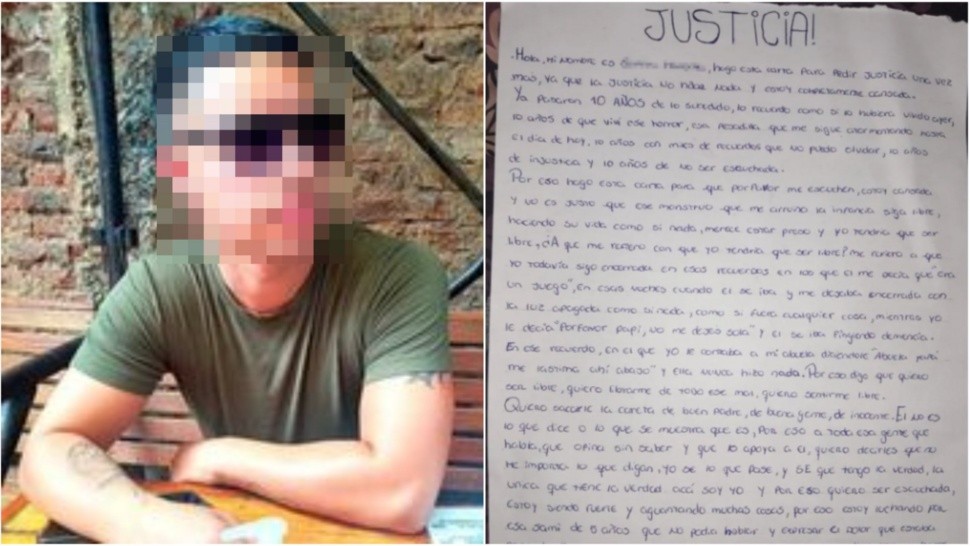 JUSTICIA!
.Hola, mi nombre es, hago esta carta para pedir justicia una vez
mas, ya que la justicia no hace nada y estoy completamente cansada.
Ya pasaron 10 AÑOS de lo sucedido, lo recuerdo como si lo hubiera vivido ayer,
10 años de que viví ese horror, esa pesadilla que me sigue atormentando hasta
el día de hoy, 10 años con miles de recuerdos que no puedo olvidar, 10 años
de injusticia y 10 años de no ser escuchada.
Por eso hago esta carta para que por favor me escuchen, estoy cansada
y no es justo que ese monstruo que me arruino la infancia siga libre,
haciendo su vida como si nada, merece estar preso y yo tendria que ser
libre, ¿A que me refiero con que yo tendria que ser libre? me refiero a que
yo todavía sigo encerrada en esos recuerdos en los que el me decia que "era
un juego", en esas noches cuando el se iba y me dejaba encerrada con
la luz apagada como si nada, como si fuera cualquier cosa, mientras yo
le decia "Porfavor papi, no me dejes sola" y el se iba fingiendo demencia.
En ese recuerdo, en el que yo le contaba a mi abuela diciendole "Abuela papi
me lastima ahí abajo" y ella nunca hizo nada. Por eso digo que quiero
ser libre, quiero librarme de todo ese mal, quiero sentirme libre.
Quiero sacarle la careta de buen padre, de buena gente, de inocente. El no es
lo que dice o lo que se muestra que es, Por eso a toda esa gente que
habla, que opina sin saber y que lo apoya a el, quiero decirles que no
me importa lo que digan, yo se lo que pase, y SÉ que tengo la verdad, la
unica que tiene la verdad acá soy yo y por eso quiero ser escuchada,
estoy siendo fuerte y aguantando muchas cosas, por eso estoy luchando por
esa sami de 5 años que no podia hablar y expresar el dolor que estaba